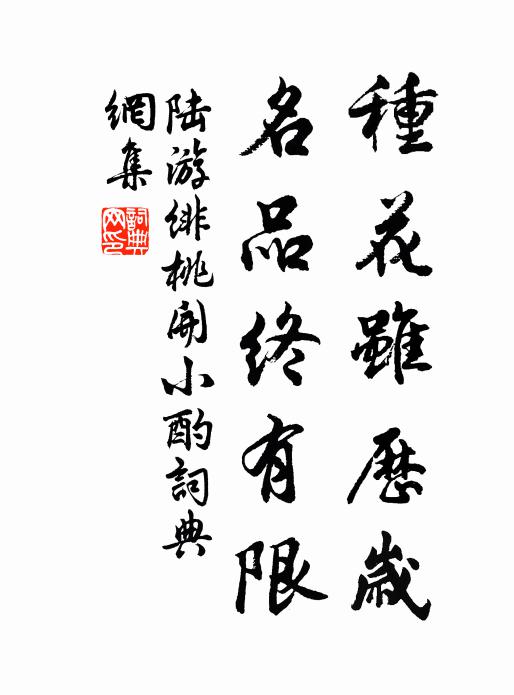 種花雖歷歲
名品終有限
陆游緋桃開小酌詞典
網集
詞典
网印